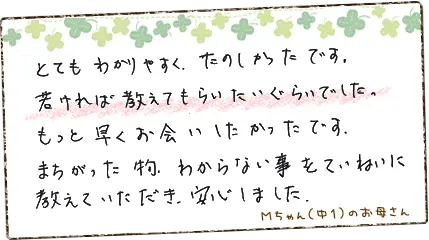 とてもわかりやすく、たのしかったです。
若ければ教えてもらいたいぐらいでした。
もっと早くお会いしたかったです。
まちがった物、わからない事をていねいに
教えていただき、安心しました。
Mちゃん(中1)のお母さん